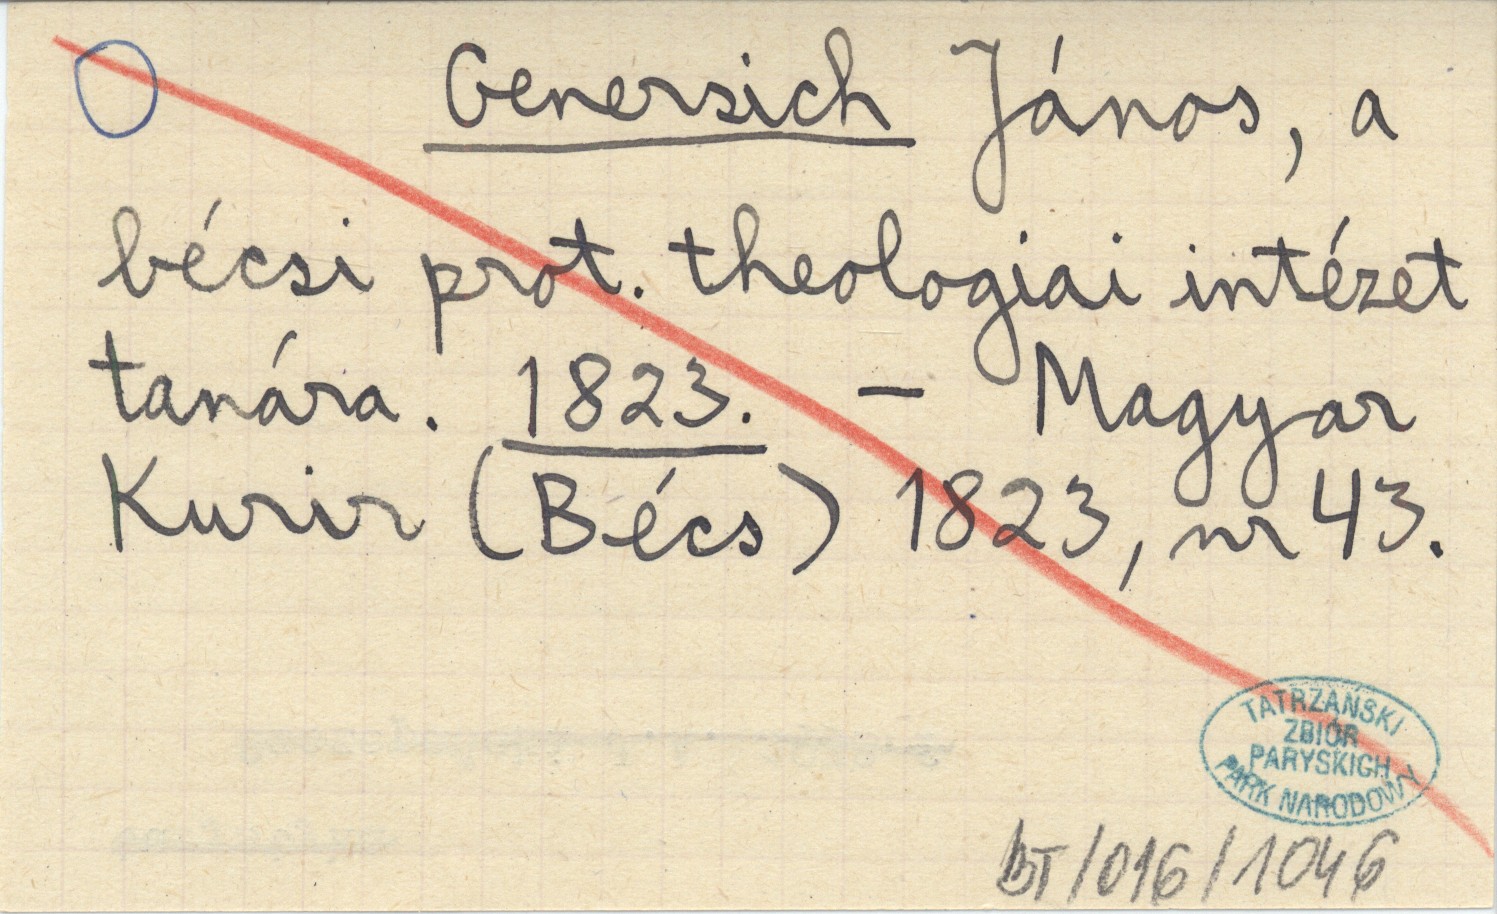 Genersich János, a
bécsi prot. theologiai intézet
tanára. 1823. – Magyar
Kurir (Bécs) 1823, nr 43.
TATRZAŃSKI
ZBIÓR
PARYSKICH
PARK NARODOWY
BT/016/1046